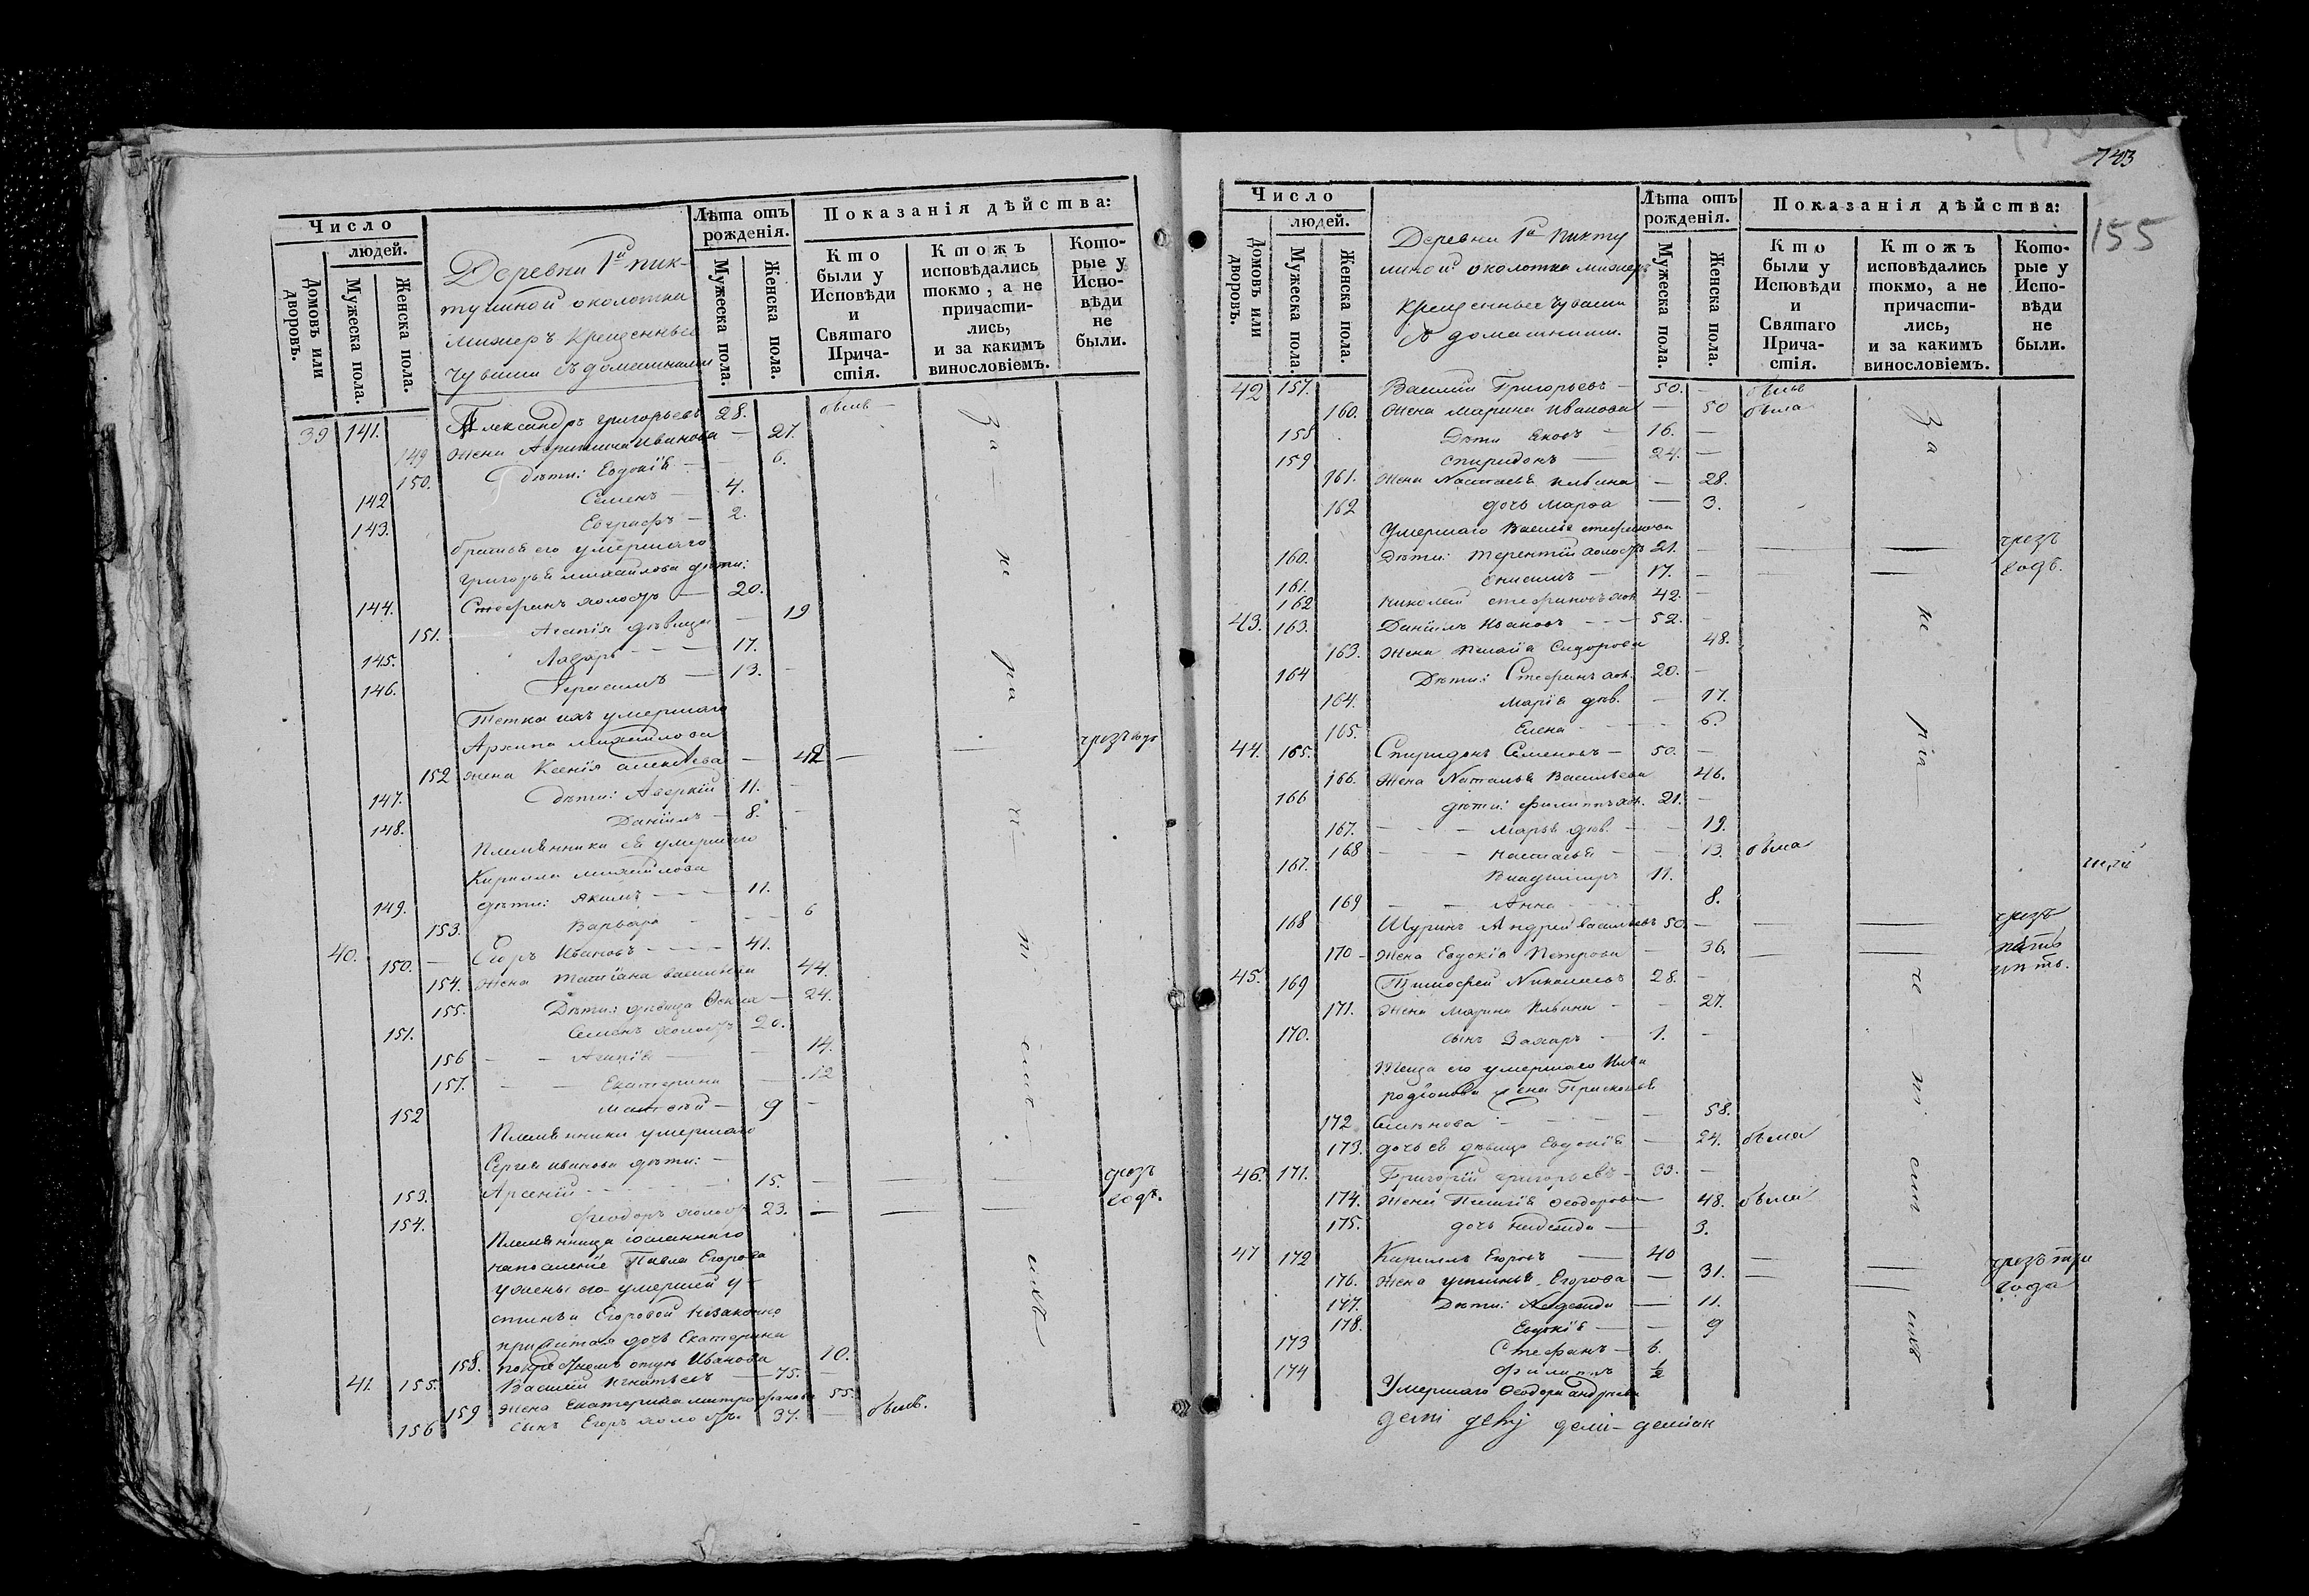 Число
людей.
Домовъ или дворовъ.
Мужеска пола.
Женска пола.
Деревни 1й пик-
тулиной околотка
Мижеръ крещенные
чуваши съ домашними
Лѣта отъ рожденія.
Мужеска пола.
Женска пола.
Показанія дѣйства:
Кто были у Исповѣди и Святаго Прича-стія.
Ктожъ исповѣдались токмо, а не причасти-лись, и за какимъ винословіемъ.
Кото-рые у Испо-вѣди не были.
39 141. Александръ Григорьевъ 28. былъ —
149 жена Иванова — 27.
150. Дѣти: Евдокія — 6.
142 Семенъ — 4.
143. Евграфъ — 2.
братья его умершаго
Григорья Михайлова дѣти:
144. Стефанъ холостъ — 20.
151. Агапія дѣвица — 19
145. Лазарь — — 17.
146. Герасимъ — 13. —
Тетка ихъ умершаго
Архипа Михайлова
152 жена Ксенія Алексѣева — 42 — — чрезъ годъ
147. дѣти: Аверкій 11. —
148. Даніилъ — 8. —
Племянники ея умершаго
Кирилла Михайлова
149. дѣти: Якимъ — — 11.
153. Варвара — — — 6
40. 150. — Егоръ Ивановъ — — — 41.
154. жена Татіана Васильева 44.
155. Дѣти: дѣвица Ѳекла — 24.
151. Семенъ холостъ 20.
156 — — Агапія — — 14.
157. — — Екатерина — 12
152 Матвѣй — 9 —
Племянники умершаго
Сергея Иванова дѣти: —
153. Арсеній — — — 15. — — — чрезъ
154. Ѳеодоръ холостъ 23. — — — годъ.
Племянница сосланнаго
на поселеніе Павла Егорова
у жены его умершей У-
стиньи Егоровой незаконно
прижитая дочь Екатерина
158. Иванова 10.
41. 155. Василій Игнатьевъ — 75. —
159 жена Екатерина Митрофанова 55.
156 сынъ Егоръ холостъ. 37. — былъ.
За — не ра —
743
155
Число
людей.
Домовъ или дворовъ.
Мужеска пола.
Женска пола.
Деревни 1й Пикту
линой околотка Мижеръ
крещенные чуваши
съ домашними.
Лѣта отъ рожденія.
Мужеска пола.
Женска пола.
Показанія дѣйства:
Кто были у Исповѣди и Святаго Прича-стія.
Ктожъ исповѣдались токмо, а не причасти-лись, и за какимъ винословіемъ.
Кото-рые у Испо-вѣди не были.
42 157. Василій Григорьевъ — 50. — былъ
160. жена Марина Иванова — 50 была
158 Дѣти Яковъ — 16. —
159 Спиридонъ — 24. —
161. жена Настасья Ильина — 28.
162 дочь Марѳа — 3.
Умершаго Василья Стефанова
160. Дѣти: Терентій холостъ 21. — — — чрезъ
161. Онисимъ — 17. — — — годъ.
162 Николай Стефановъ хол. 42. —
43. 163. Даніилъ Ивановъ — — — 52. —
163. жена Пелагія Сидорова 48.
164 Дѣти: Стефанъ хол. 20. —
164. Марія дѣв. — 17.
165. Елена — — 6.
44. 165. Спиридонъ Семеновъ — 50. —
166. жена Наталья Васильева 46.
166 дѣти: Филиппъ хол. 21. —
167. — — — Марья дѣв. — 19.
168 — — — Настасья — — 13. была
167. Владиміръ 11.
169 — — Анна — — 8.
168 Шуринъ Андрей Васильевъ 50. — — — чрезъ
170 — жена Евдокія Петрова — 36. — — пять
лѣтъ.
45. 169 Тимофей Николаевъ 28. —
171. жена Марина Ильина — — 27.
170. сынъ Захаръ — 1. —
Теща его умершаго Ильи
Родіонова жена Прасковья
172 Семенова — — — 58.
173. дочь ея дѣвица Евдокія — 24. была
46. 171. Григорій Григорьевъ — 33. —
174. жена Пелагія Ѳеодорова — 48. была
175. дочь Надежда — 3.
47 172 Кириллъ Егоровъ — 40 — — чрезъ три
176. жена Устинья Егорова — 31. — — года
177. Дѣти: Надежда — 11.
178. Евдокія — — 9
173 Стефанъ — 6.
174 Филиппъ ½
Умершаго Ѳеодора Андреева
За не ра —